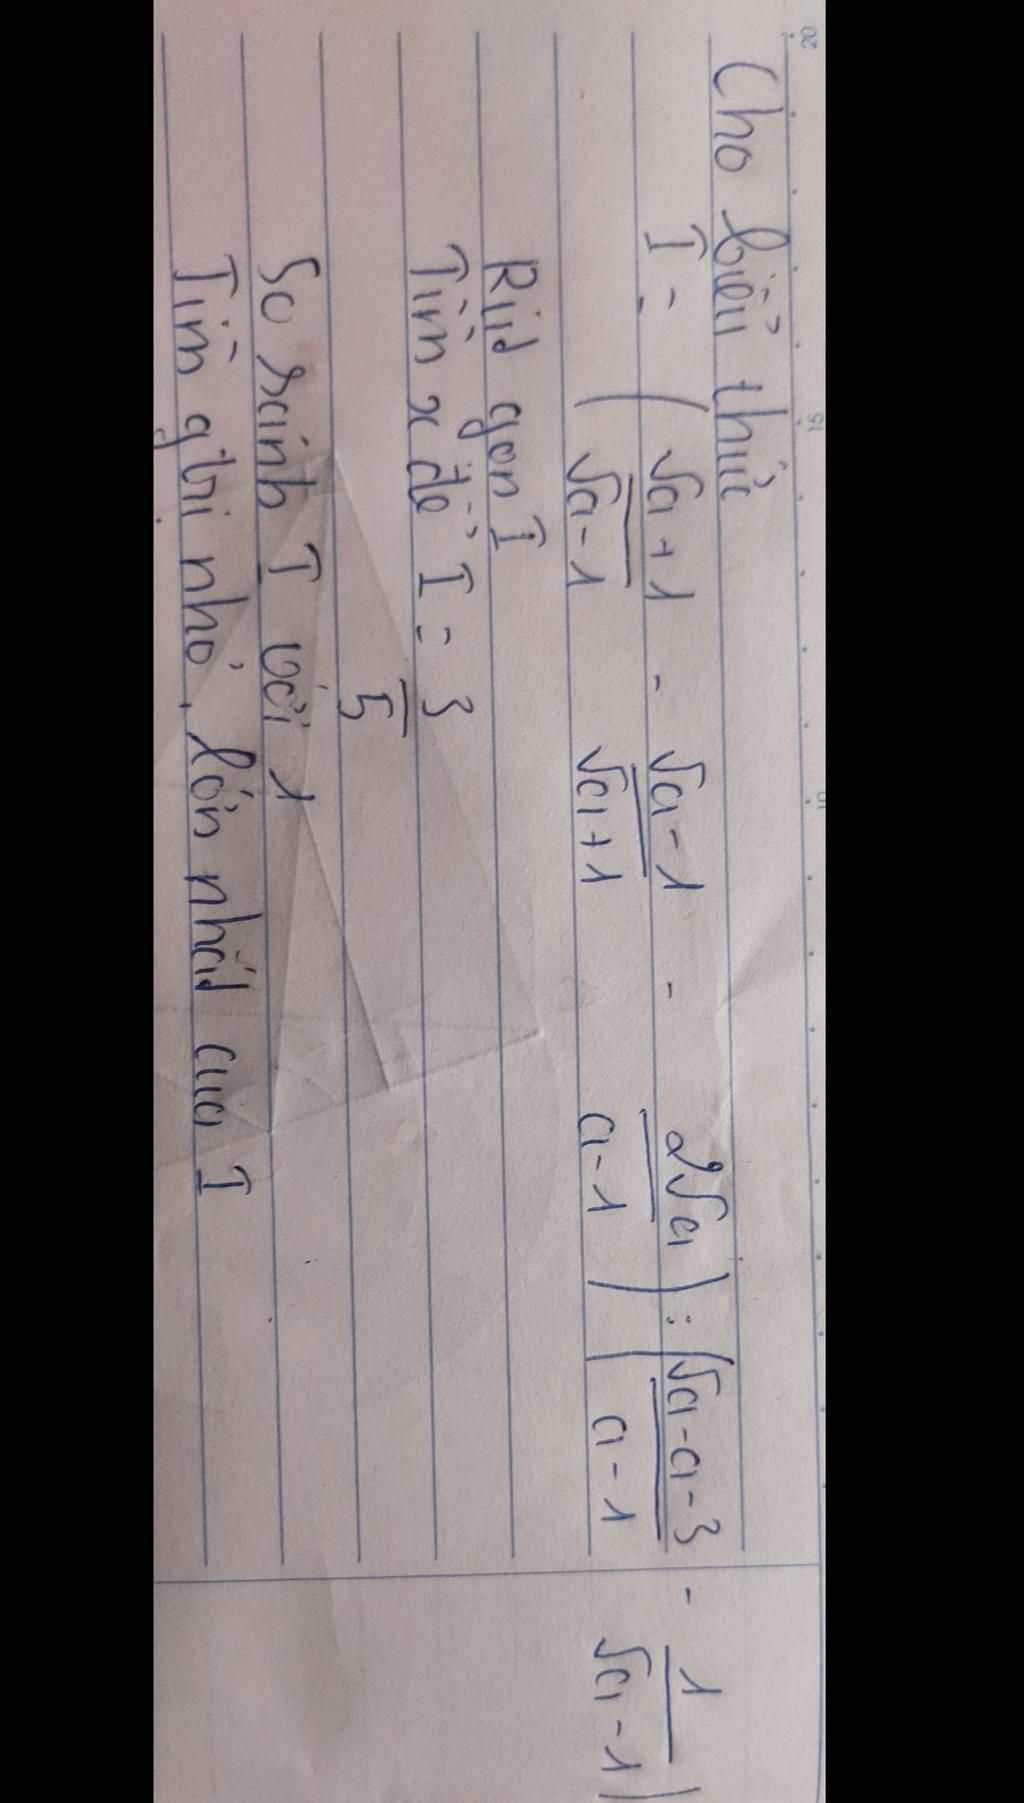 Cho biểu thức
I = ( √a+1 / √a-1 - √a-1 / √a+1 - 2√a / a-1 ) : ( √a-a-3 / a-1 - 1 / √a-1 )
Rút gọn I
Tìm x để I = 3/5
So sánh I với 1
Tìm gtrị nhỏ, lớn nhất của I
20
15
10